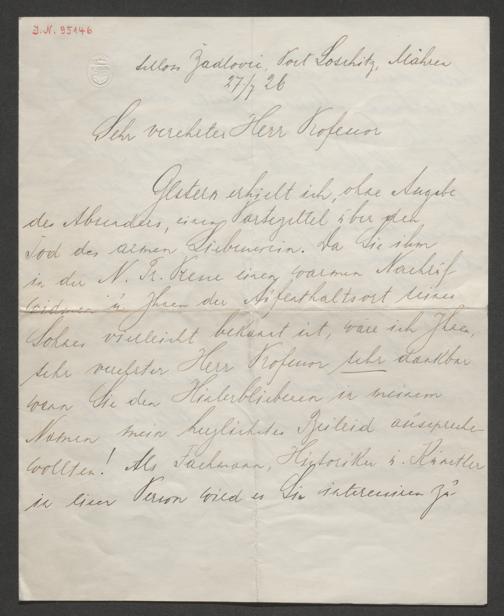 J.N. 95146
Schloss Žadlovic, Post Loschitz, Mähren
27/7 26
Sehr verehrter Herr Professor
Gestern erhielt ich, ohne Angabe
des Absenders, einen Partezettel über den
Tod des armen Liebenwein. Da Sie ihm
in der N. Fr. Presse einen warmen Nachruf
widmen u. Ihnen der Aufenthaltsort seines
Sohnes vielleicht bekannt ist, wäre ich Ihnen,
sehr verehrter Herr Professor sehr dankbar
wenn Sie den Hinterbliebenen in meinem
Namen mein herzlichstes Beileid aussprechen
wollten! Als Fachmann, Historiker u. Künstler
in einer Person wird es Sie interessieren zu